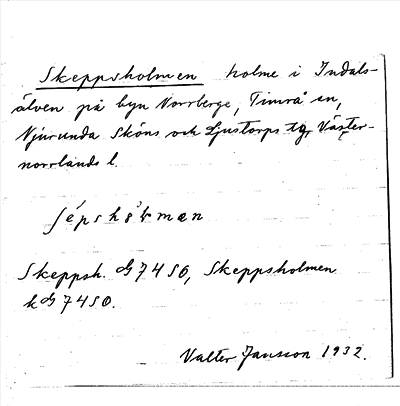 Skeppsholmen holme i Indals-
älven på byn Norrberge, Timrå sn,
Njurunda Sköns och Ljustorps tg, Väster-
norrlands l.
Skeppsh. G 7450, Skeppsholmen
k G 7450.
Valter Jansson 1932.